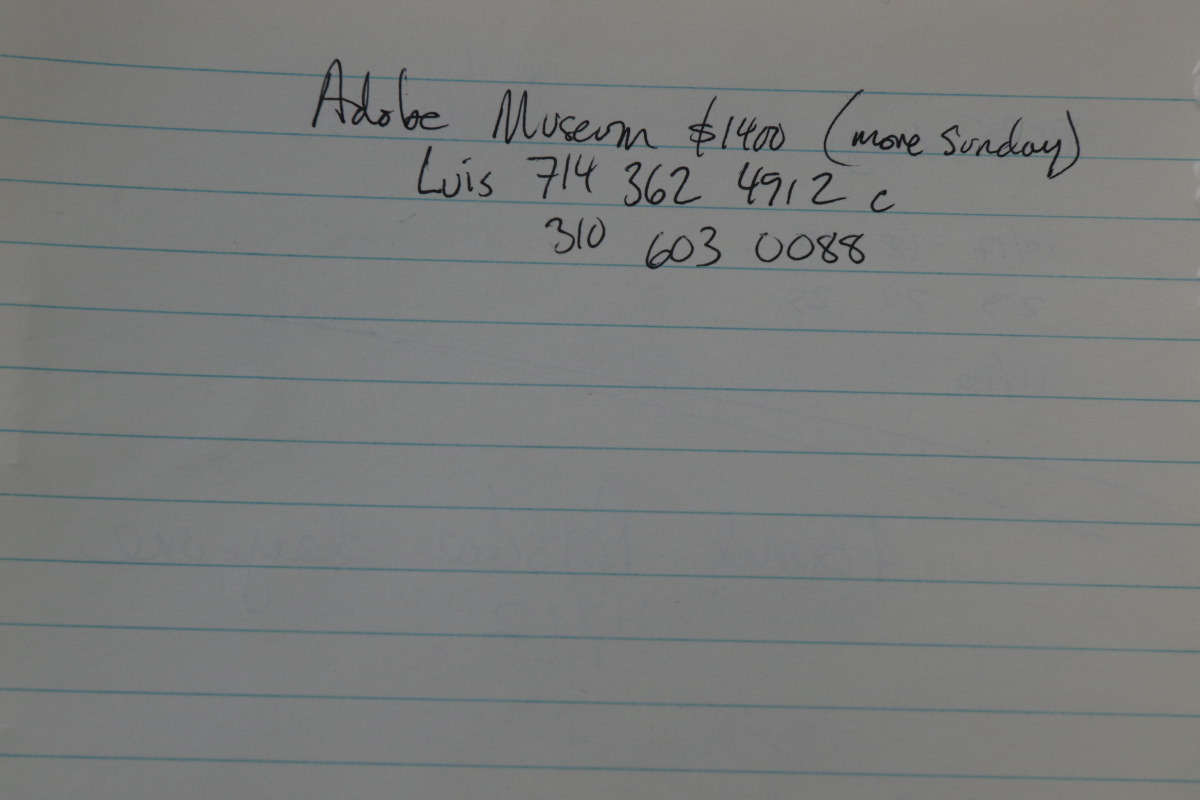 Adobe Museum $1400 (more Sunday)
Luis 714 362 4912 c
310 603 0088